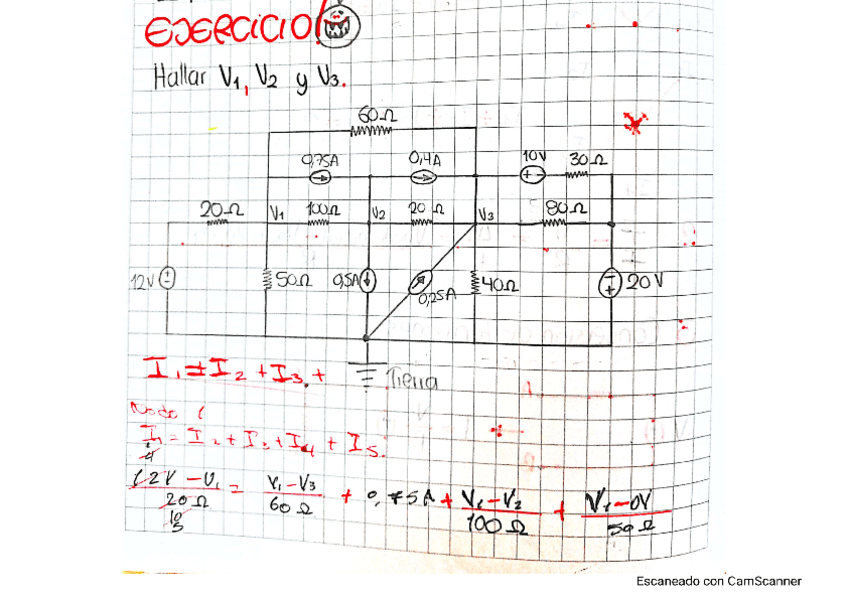 EJERCICIO!
Hallar V1, V2 y V3.
60Ω
0,75A 0,4A 10V 30Ω
+ -
20Ω V1 100Ω V2 20Ω V3 80Ω
12V 50Ω 0,5A 0,25A 40Ω 20V
I1 = I2 + I3 +
Tierra
Nodo 1
I1 = I2 + I3 + I4 + I5
12V - V1 / 20Ω = V1 - V3 / 60Ω + 0,75A + V1 - V2 / 100Ω + V1 - 0V / 50Ω
10
5
Escaneado con CamScanner